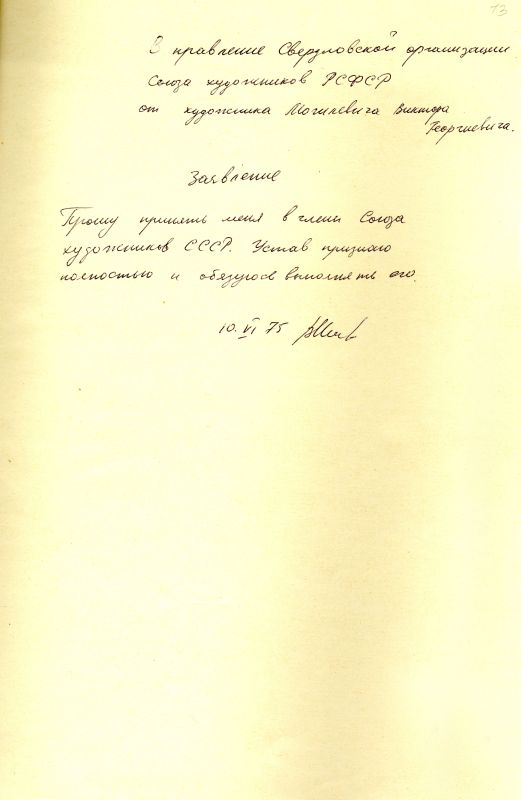 13
В правление Свердловской организации
Союза художников РСФСР
от художника Могилевича Виктора
Георгиевича.
Заявление
Прошу принять меня в члены Союза
художников СССР. Устав признаю
полностью и обязуюсь выполнять его.
10. VI 75